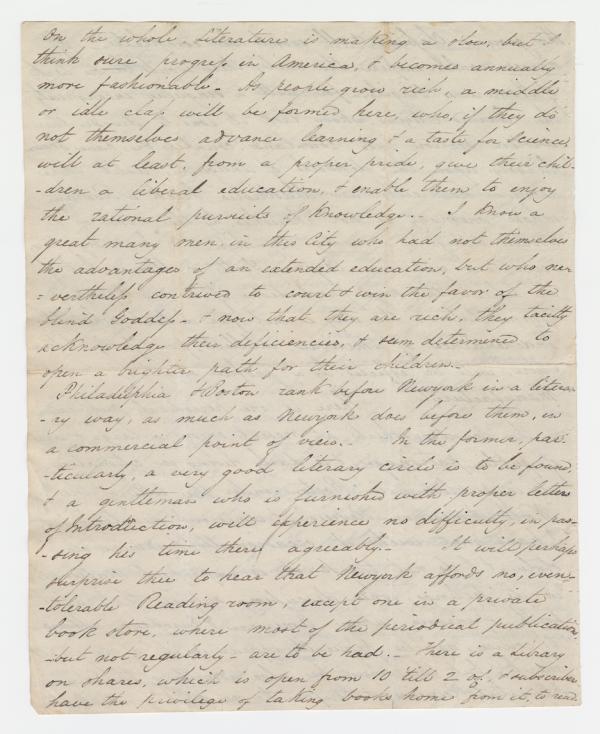 On the whole, Literature is making a slow, but I
think sure progress in America, & becomes annually
more fashionable. As people grow rich, a middle
or idle class will be formed here, who, if they do
not themselves advance learning & a taste for science,
will at least, from a proper pride, give their chil-
-dren a liberal education, & enable them to enjoy
the rational pursuits of knowledge.- I know a
great many men, in this City who had not themselves
the advantages of an extended education, but who ne-
=vertheless contrived to court & win the favor of the
blind Goddess- & now that they are rich, they tacitly
acknowledge their deficiencies, & seem determined to
open a brighter path for their children.-
Philadelphia & Boston rank before Newyork in a litera-
-ry way, as much as Newyork does before them, in
a commercial point of view.- In the former, par-
-ticularly, a very good literary circle is to be found,
& a gentleman who is furnished with proper letters
of Introduction, will experience no difficulty, in pas-
-sing his time there agreeably.- It will perhaps
surprise thee to hear that Newyork affords no, even
-tolerable Reading room, except one in a private
book store, where most of the periodical publications
-but not regularly- are to be had.- There is a Library
on shares, which is open from 10 till 2 o'c. & subscribers
have the privilege of taking books home from it, to read.